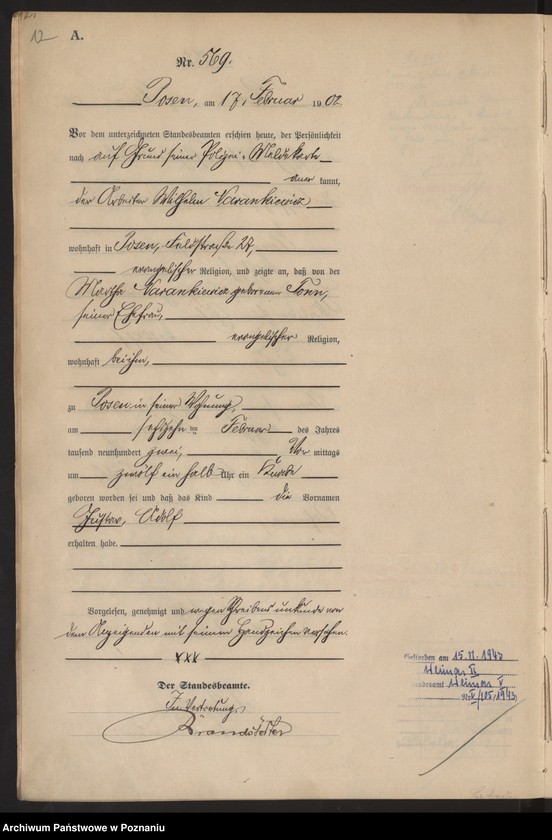 12
A.
Nr. 569.
Posen, am 17. Februar 1902
Vor dem unterzeichneten Standesbeamten erschien heute, der Persönlichkeit
nach auf Grund seiner Polizei-Meldekarte
aner kannt,
der Arbeiter Wilhelm Narankiewicz
wohnhaft in Posen, Feldstraße 27,
evangelischer Religion, und zeigte an, daß von der
Martha Narankiewicz geborenen Tonn,
seiner Ehefrau,
evangelischer Religion,
wohnhaft bei ihm,
zu Posen in seiner Wohnung,
am sechszehn ten Februar des Jahres
tausend neunhundert zwei, Vor mittags
um zwölf ein halb Uhr ein Knabe
geboren worden sei und daß das Kind die Vornamen
Gustav, Adolf
erhalten habe.
Vorgelesen, genehmigt und wegen Schreibensunkunde von
dem Anzeigenden mit seinem Handzeichen versehen.
XXX
Der Standesbeamte.
In Vertretung.
Brandstätter
Gestorben am 15.11.1943
Weimar II
Standesamt Weimar V
Nr.
Archiwum Państwowe w Poznaniu